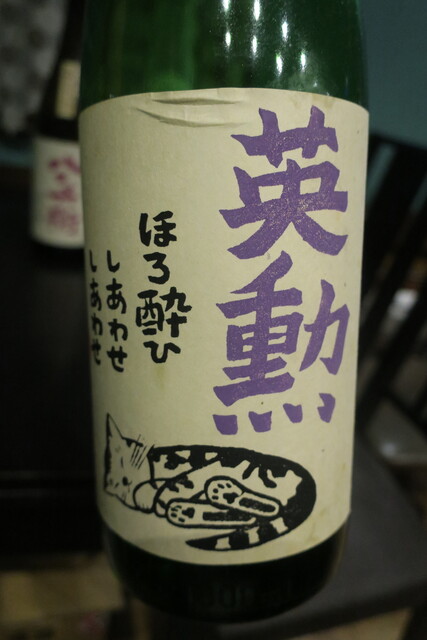 英勲
ほろ酔ひ
しあわせ
しあわせ